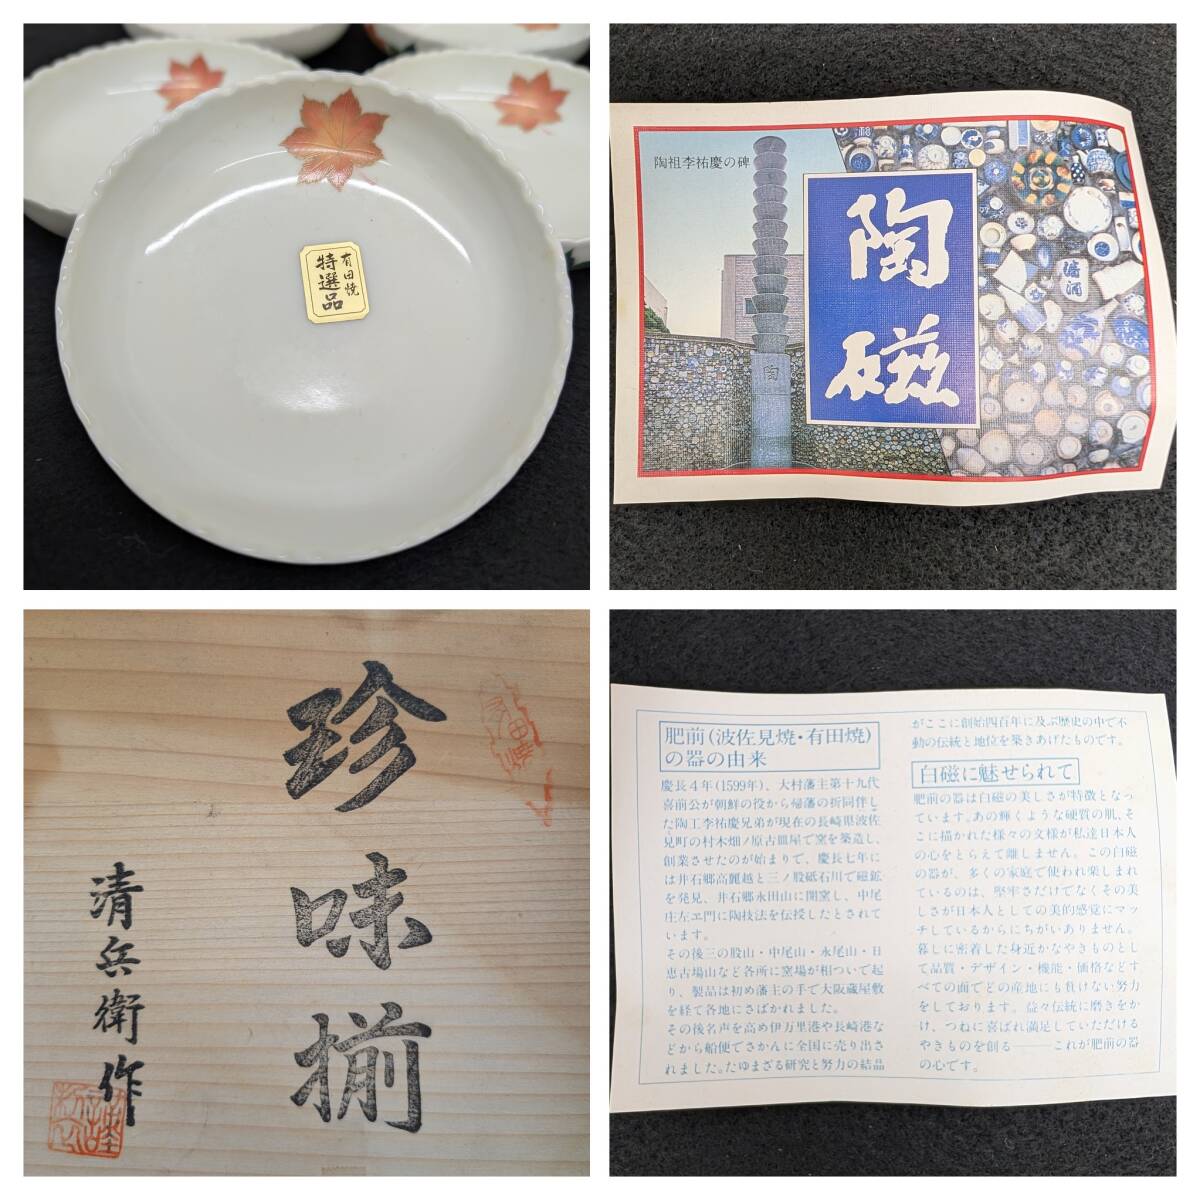 有田焼
特選品
陶祖李祐慶の碑
陶磁
陶
清酒
珍味揃
清兵衛作
有田焼
肥前(波佐見焼・有田焼)
の器の由来
慶長4年(1599年)、大村藩主第十九代
喜前公が朝鮮の役から帰藩の折同伴し
た陶工李祐慶兄弟が現在の長崎県波佐
見町の村木畑ノ原古皿屋で窯を築造し、
創業させたのが始まりで、慶長七年に
は井石郷高麗越と三ノ股砥石川で磁鉱
を発見、井石郷永田山に開窯し、中尾
庄左ヱ門に陶技法を伝授したとされて
います。
その後三の股山・中尾山・永尾山・日
恵古場山など各所に窯場が相ついで起
り、製品は初め藩主の手で大阪蔵屋敷
を経て各地にさばかれました。
その後名声を高め伊万里港や長崎港な
どから船便でさかんに全国に売り出さ
れました。たゆまざる研究と努力の結晶
がここに創始四百年に及ぶ歴史の中で不
動の伝統と地位を築きあげたものです。
白磁に魅せられて
肥前の器は白磁の美しさが特徴となっ
ています。あの輝くような硬質の肌、そ
こに描かれた様々の文様が私達日本人
の心をとらえて離しません。この白磁
の器が、多くの家庭で使われ楽しまれ
ているのは、堅牢さだけでなくその美
しさが日本人としての美的感覚にマッ
チしているからにちがいありません。
暮しに密着した身近かなやきものとし
て品質・デザイン・機能・価格などす
べての面でどの産地にも負けない努力
をしております。益々伝統に磨きをか
け、つねに喜ばれ満足していただける
やきものを創る――これが肥前の器
の心です。